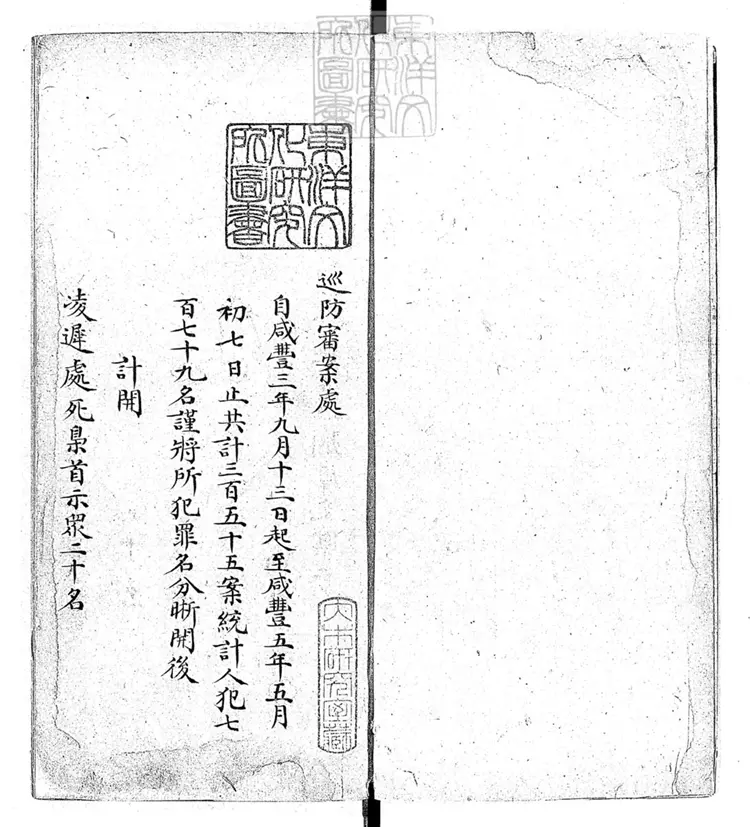 東洋文化研究所圖書
巡防審案處
自咸豐三年九月十三日起至咸豐五年五月
初七日止共計三百五十五案統計人犯七
百七十九名謹將所犯罪名分晰開後
計開
凌遲處死梟首示眾二十名
大木研究室藏
東洋文化研究所圖書